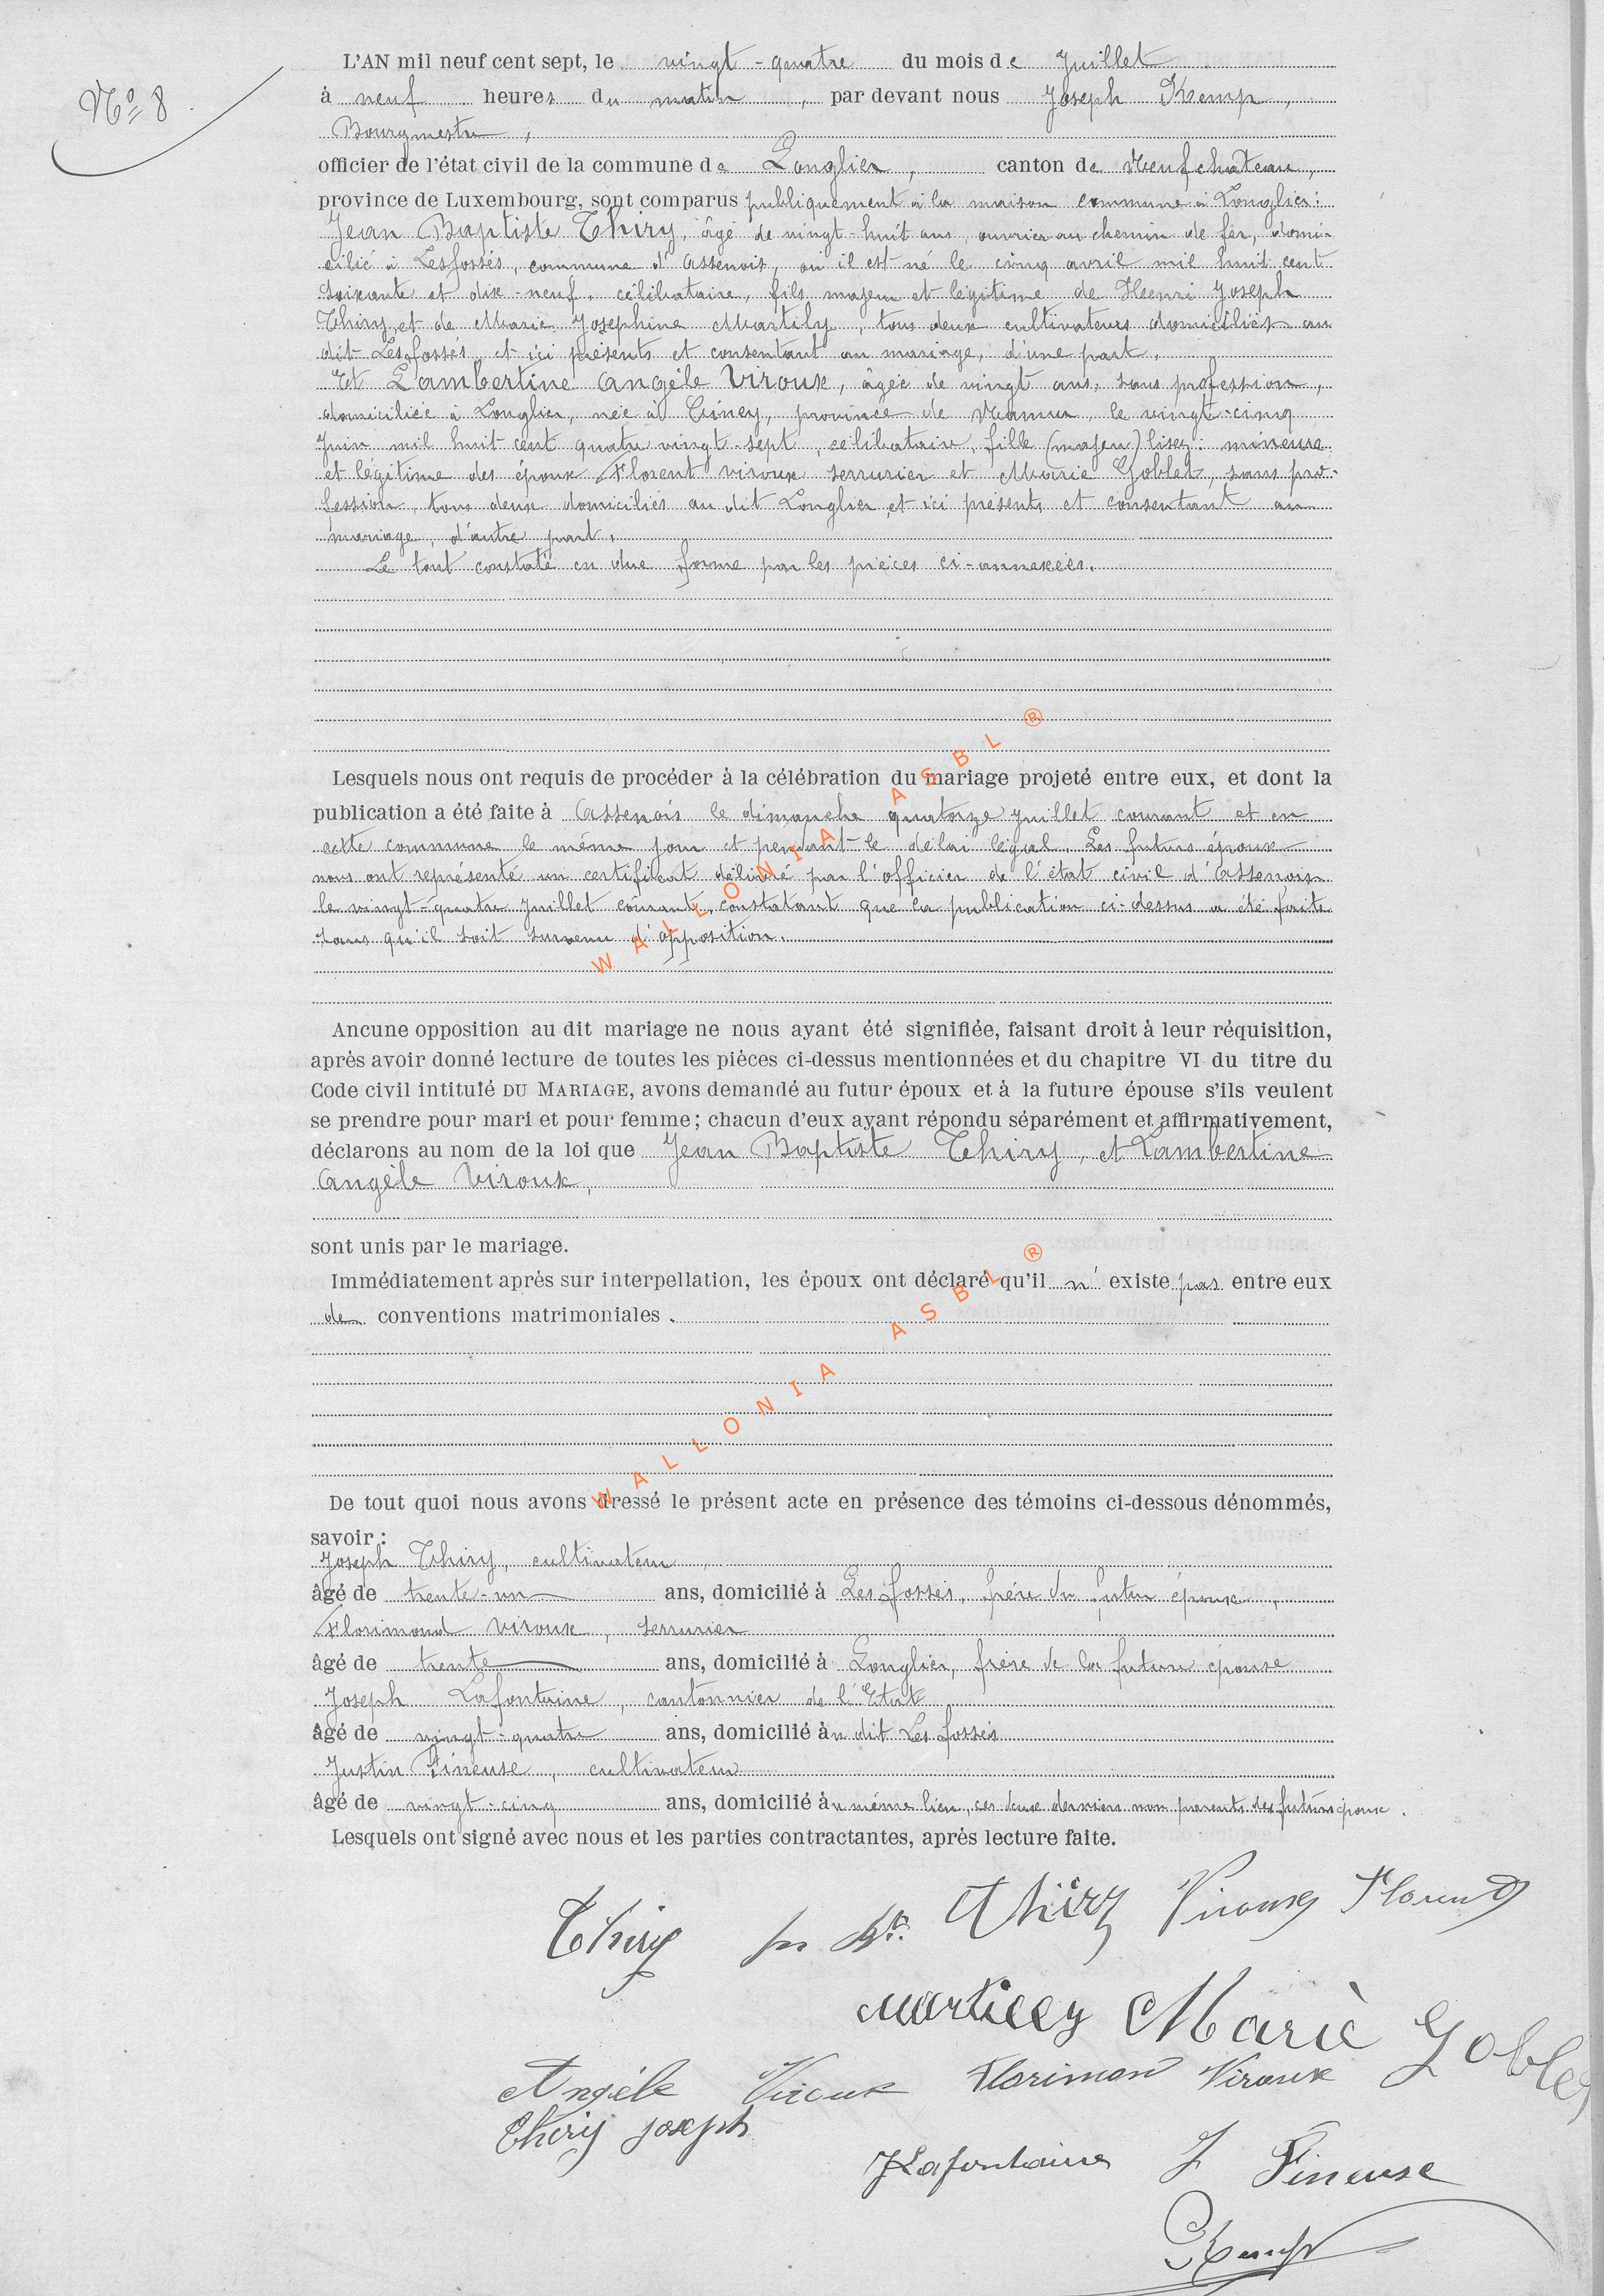 N° 8
L'AN mil neuf cent sept, le vingt-quatre du mois de Juillet
à neuf heures du matin, par devant nous Joseph Kemp,
Bourgmestre,
officier de l'état civil de la commune de Longlier, canton de Neufchâteau,
province de Luxembourg, sont comparus publiquement à la maison commune à Longlier:
Jean Baptiste Thiry, âgé de vingt-huit ans, ouvrier au chemin de fer, domi-
cilié à Lesfossés, commune d'Assenois, où il est né le cinq avril mil huit cent
soixante et dix-neuf, célibataire, fils majeur et légitime de Henri Joseph
Thiry et de Marie Josephine Martily, tous deux cultivateurs domiciliés au
dit Lesfossés et ici présents et consentant au mariage, d'une part,
Et Lambertine Angèle Viroux, âgée de vingt ans, sans profession,
domiciliée à Longlier, née à Ciney, province de Namur, le vingt-cinq
Juin mil huit cent quatre vingt-sept, célibataire, fille (majeur) lisez: mineure
et légitime des époux Florent Viroux serrurier et Marie Goblet, sans pro-
fession, tous deux domiciliés au dit Longlier et ici présents et consentant au
mariage, d'autre part.
Le tout constaté en due forme par les pièces ci-annexées.
Lesquels nous ont requis de procéder à la célébration du mariage projeté entre eux, et dont la
publication a été faite à Assenois le dimanche quatorze Juillet courant et en
cette commune le même jour et pendant le délai légal. Les futurs époux
nous ont représenté un certificat délivré par l'officier de l'état civil d'Assenois
le vingt-quatre Juillet courant, constatant que la publication ci-dessus a été faite
sans qu'il soit survenu d'opposition.
WALLONIA ASBL ®
Aucune opposition au dit mariage ne nous ayant été signifiée, faisant droit à leur réquisition,
après avoir donné lecture de toutes les pièces ci-dessus mentionnées et du chapitre VI du titre du
Code civil intitulé DU MARIAGE, avons demandé au futur époux et à la future épouse s'ils veulent
se prendre pour mari et pour femme; chacun d'eux ayant répondu séparément et affirmativement,
déclarons au nom de la loi que Jean Baptiste Thiry, et Lambertine
Angèle Viroux,
sont unis par le mariage.
Immédiatement après sur interpellation, les époux ont déclaré qu'il n'existe pas entre eux
de conventions matrimoniales.
WALLONIA ASBL ®
De tout quoi nous avons dressé le présent acte en présence des témoins ci-dessous dénommés,
savoir:
Joseph Thiry, cultivateur,
âgé de trente-un ans, domicilié à Les fossés, frère du futur époux,
Florimond Viroux, serrurier
âgé de trente ans, domicilié à Longlier, frère de la future épouse
Joseph Lafontaine, cantonnier de l'Etat
âgé de vingt-quatre ans, domicilié àu dit Les fossés
Justin Fineuse, cultivateur
âgé de vingt-cinq ans, domicilié àu même lieu, ces deux derniers non parents des futurs époux.
Lesquels ont signé avec nous et les parties contractantes, après lecture faite.
Thiry Thiry Viroux Florent
Martiley Marie Goblet
Angèle Viroux Florimon Viroux
Thiry Joseph
J Lafontaine J Fineuse
Kemp